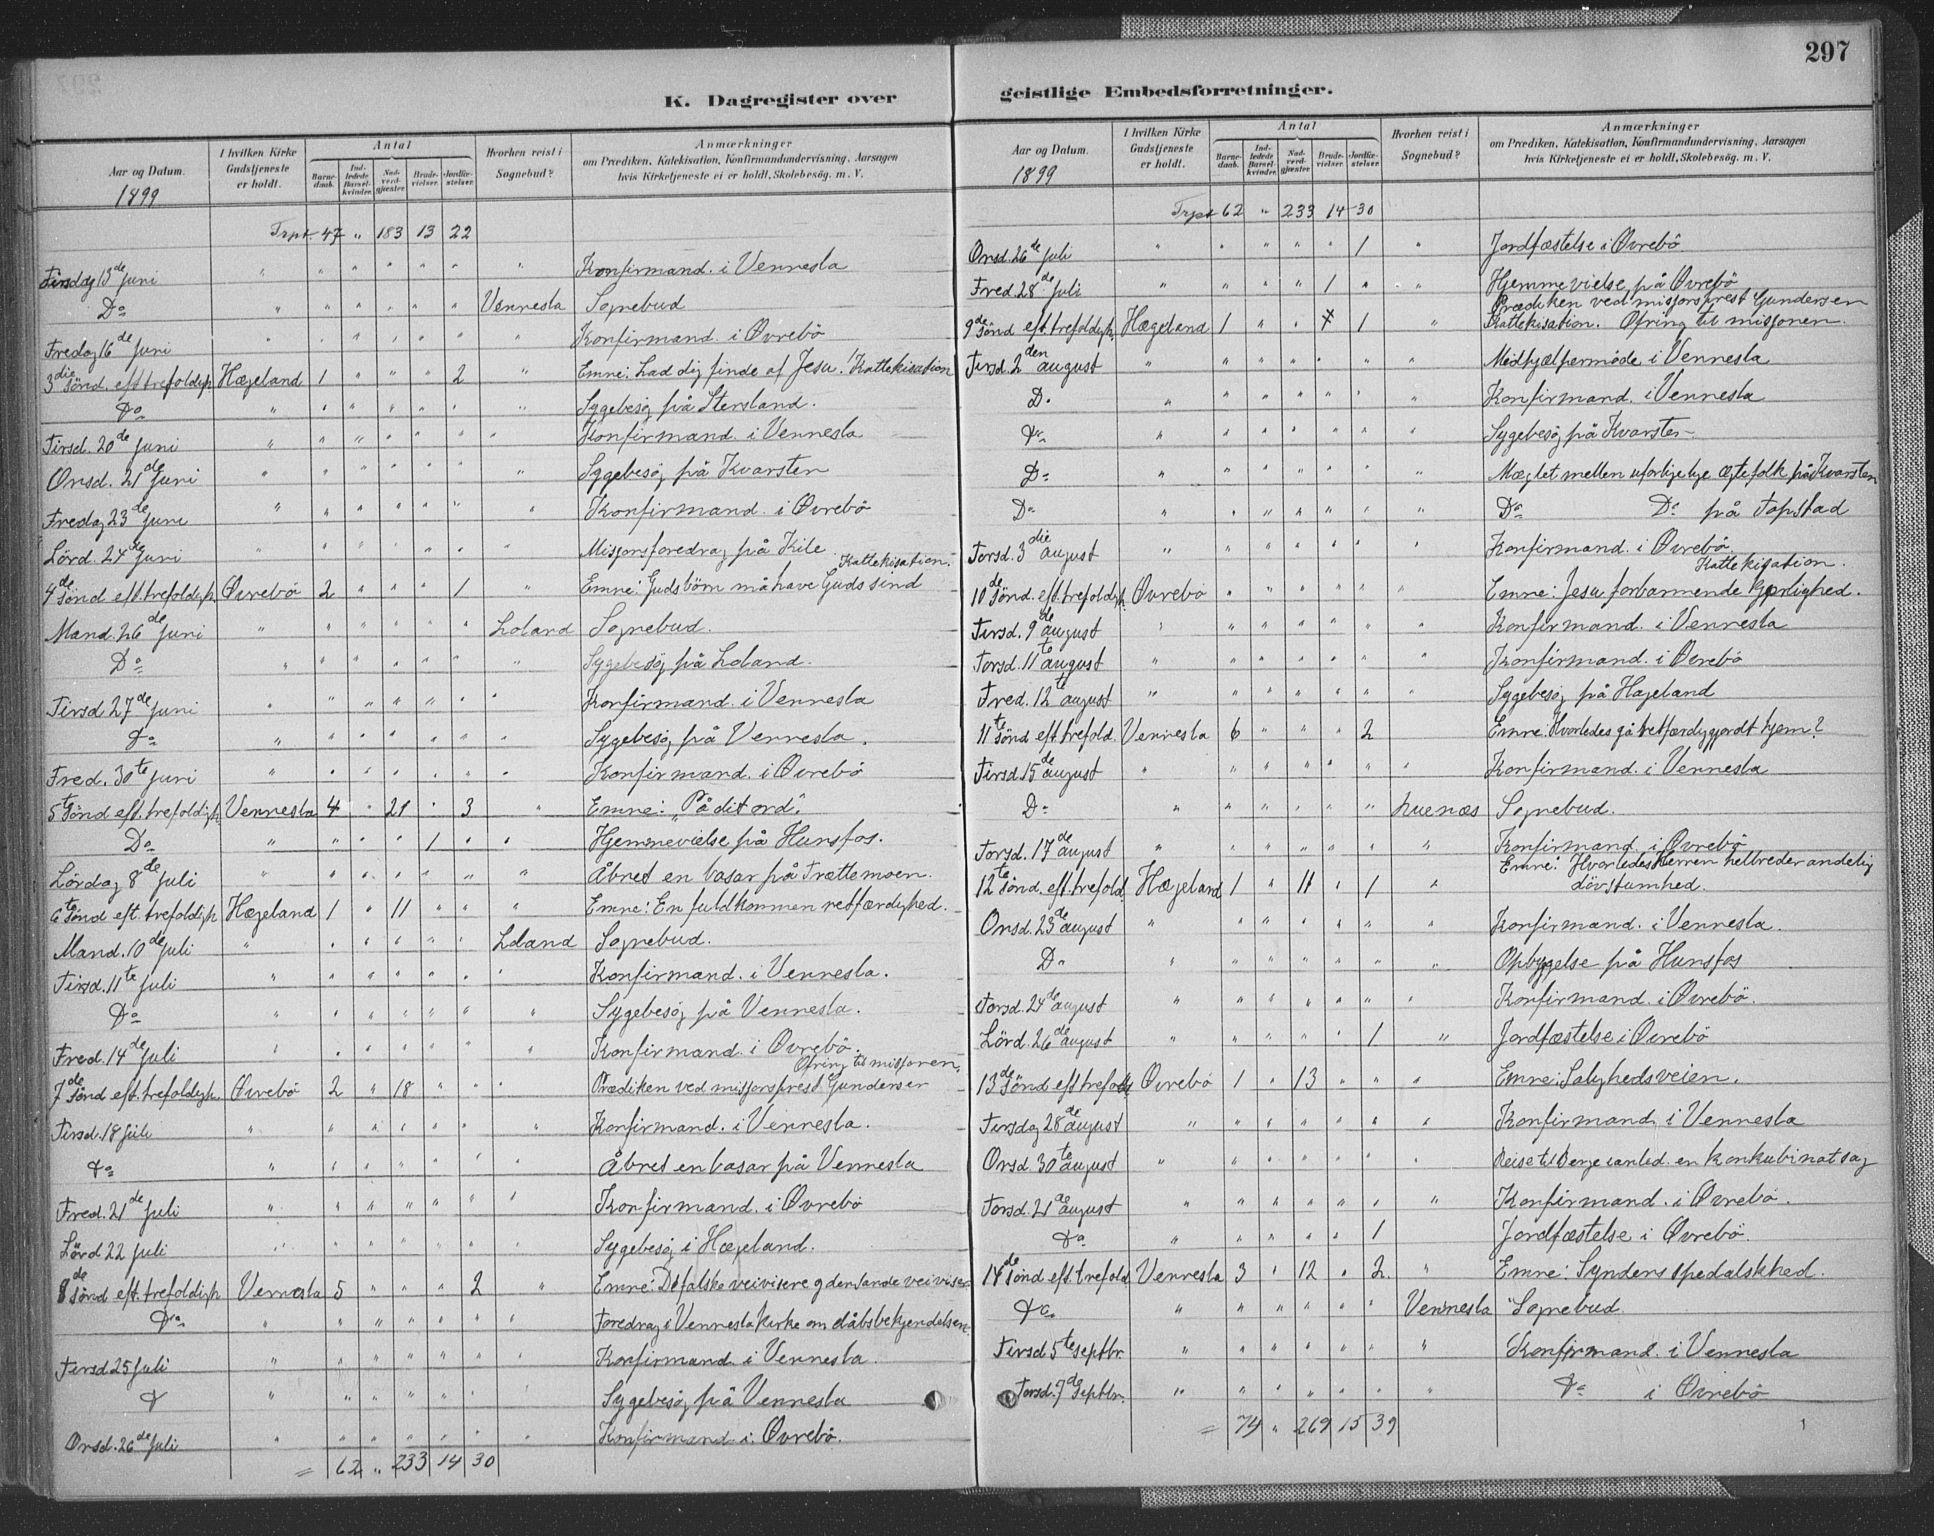 297
K. Dagregister over
Aar og Datum.
1899
I hvilken Kirke Gudstjeneste er holdt.
Antal
Barnedaab.
Indledede Barselkvinder.
Nadverdgjæster
Brudevielser.
Jordfæstelser.
Hvorhen reist i Sognebud?
Anmærkninger
om Prædiken, Katekisation, Konfirmandundervisning, Aarsagen
hvis Kirketjeneste ei er holdt, Skolebesög. m. V.
Trpt. 47 " 183 13 22
Tirsdag 13de juni " " " " " " " Konfirmand. i Vennesla
Do " " " " " " Vennesla Sognebud
Fredag 16de juni " " " " " " " Konfirmand. i Øvrebö
3die sönd. eft. trefoldigh. Hægeland 1 " " " 2 " Emne: Lad dig finde af Jesu! Kattekisation
Do " " " " " " " Sygebesög på Stersland.
Tirsd. 20de juni " " " " " " " Konfirmand. i Vennesla
Onsd. 21de juni " " " " " " " Sygebesög på Kvarsten
Fredag 23de juni " " " " " " " Konfirmand. i Øvrebö
Lörd. 24de juni " " " " " " " Misjonsforedrag på Kile
Kattekisation.
4de sönd eft. trefoldigh. Øvrebö 2 " " " 1 " Emne: Guds börn må have Guds sind
Mand. 26de juni " " " " " " Loland Sognebud.
Do " " " " " " " Sygebesög på Loland.
Tirsd 27de juni " " " " " " " Konfirmand. i Vennesla
Do " " " " " " " Sygebesög på Vennesla.
Fred. 30te juni " " " " " " " Konfirmand. i Øvrebö
5te sönd eft. trefoldigh. Vennesla 4 " 21 " 3 " Emne: "På dit ord".
Do " " " " 1 " " Hjemmevielse på Hunsfos.
Lördag 8de juli " " " " " " " Åbnet en basar på Trættemoen.
6te sönd eft. trefoldigh Hægeland 1 " 11 " " " Emne: En fuldkommen retfærdighed.
Mand. 10de juli " " " " " " Loland Sognebud.
Tirsd. 11te juli " " " " " " " Konfirmand. i Vennesla.
Do " " " " " " " Sygebesög på Vennesla.
Fred. 14de juli " " " " " " " Konfirmand. i Øvrebö.
Ofring til misjonen.
7de sönd eft. trefoldigh. Øvrebö 2 " 18 " " " Prædiken ved misjonsprest Gundersen
Tirsd. 18 juli " " " " " " " Konfirmand. i Vennesla.
Do " " " " " " " Åbnet en basar på Vennesla
Fred. 21de juli " " " " " " " Konfirmand. i Øvrebö
Lörd 22 juli " " " " " " " Sygebesög i Hægeland.
8de sönd eft. trefoldigh Vennesla 5 " " " 2 " Emne: De falske veivisere og den sande veiviser
Do " " " " " " " Foredrag i Vennesla kirke om dåbsbekjendelsen.
Tirsd 25 juli " " " " " " " Konfirmand. i Vennesla.
D " " " " " " " Sygebesög på Vennesla
Onsd. 26de juli " " " " " " " Konfirmand i Øvrebö.
= 62 " 233 14 30
geistlige Embedsforretninger.
Aar og Datum.
1899
I hvilken Kirke Gudstjeneste er holdt.
Antal
Barnedaab.
Indledede Barselkvinder.
Nadverdgjæster
Brudevielser.
Jordfæstelser.
Hvorhen reist i Sognebud?
Anmærkninger
om Prædiken, Katekisation, Konfirmandundervisning, Aarsagen
hvis Kirketjeneste ei er holdt, Skolebesög. m. V.
Trpt 62 " 233 14 30
Onsd. 26de juli " " " " " 1 " Jordfæstelse i Øvrebö
Fred. 28de juli " " " " 1 " " Hjemmevielse på Øvrebö
Prædiken ved misjonsprest Gundersen
9de sönd eft. trefoldigh. Hægeland 1 " " 1 " Kattekisation. Ofring til misjonen.
Tirsd. 2den august " " " " " " " Medhjælpermöde i Vennesla
Do " " " " " " " Konfirmand. i Vennesla
Do " " " " " " " Sygebesög på Kvarsten
Do " " " " " " " Mæglet mellem uforligelige ægtefolk på Kvarsten
Do " " " " " " " Do Do på Topstad
Torsd. 3die august " " " " " " " Konfirmand. i Øvrebö.
Kattekisation.
10de sönd. eft. trefoldigh. Øvrebö " " " " " " Emne: Jesu forbarmende kjærlighed.
Tirsd. 9de august " " " " " " " Konfirmand. i Vennesla
Torsd. 11te august " " " " " " " Konfirmand. i Øvrebö
Fred. 12te august " " " " " " " Sygebesög på Hægeland
11te sönd eft trefold. Vennesla 6 " " " 2 Emne: Hvorledes gå retfærdiggjordt hjem?
Tirsd 15de august " " " " " " " Konfirmand. i Vennesla
Do " " " " " " Sognebud.
Torsd. 17de august " " " " " " " Konfirmand. i Øvrebö
Emne: Hvorledes Herren helbreder andelig
12te sönd. eft. trefold. Hægeland 1 " 11 " 1 " dövstumhed.
Onsd. 23de august " " " " " " " Konfirmand. i Vennesla.
Do " " " " " " " Opbyggelse på Hunsfos
Torsd. 24de august " " " " " " " Konfirmand. i Øvrebö.
Lörd. 26de august " " " " " 1 " Jordfæstelse i Øvrebö
13de sönd eft trefold Øvrebö 1 " 13 " " " Emne: Salighedsveien.
Tirsdag 28de august " " " " " " " Konfirmand. i Vennesla
Onsd 30te august " " " " " " " Reise til Berge i anled. en konkubinatsag
Torsd. 21de august " " " " " " " Konfirmand. i Øvrebö.
Do " " " " " 1 Jordfæstelse i Øvrebö.
14de sönd eft. trefold. Vennesla 3 " 12 " 2 " Emne: Syndens spedalskhed.
Do " " " " " " Vennesla Sognebud.
Tirsd 5te septbr. " " " " " " " Konfirmand. i Vennesla
Torsd. 7de septbr. " " " " " " " Do i Øvrebö
= 74 " 269 15 39